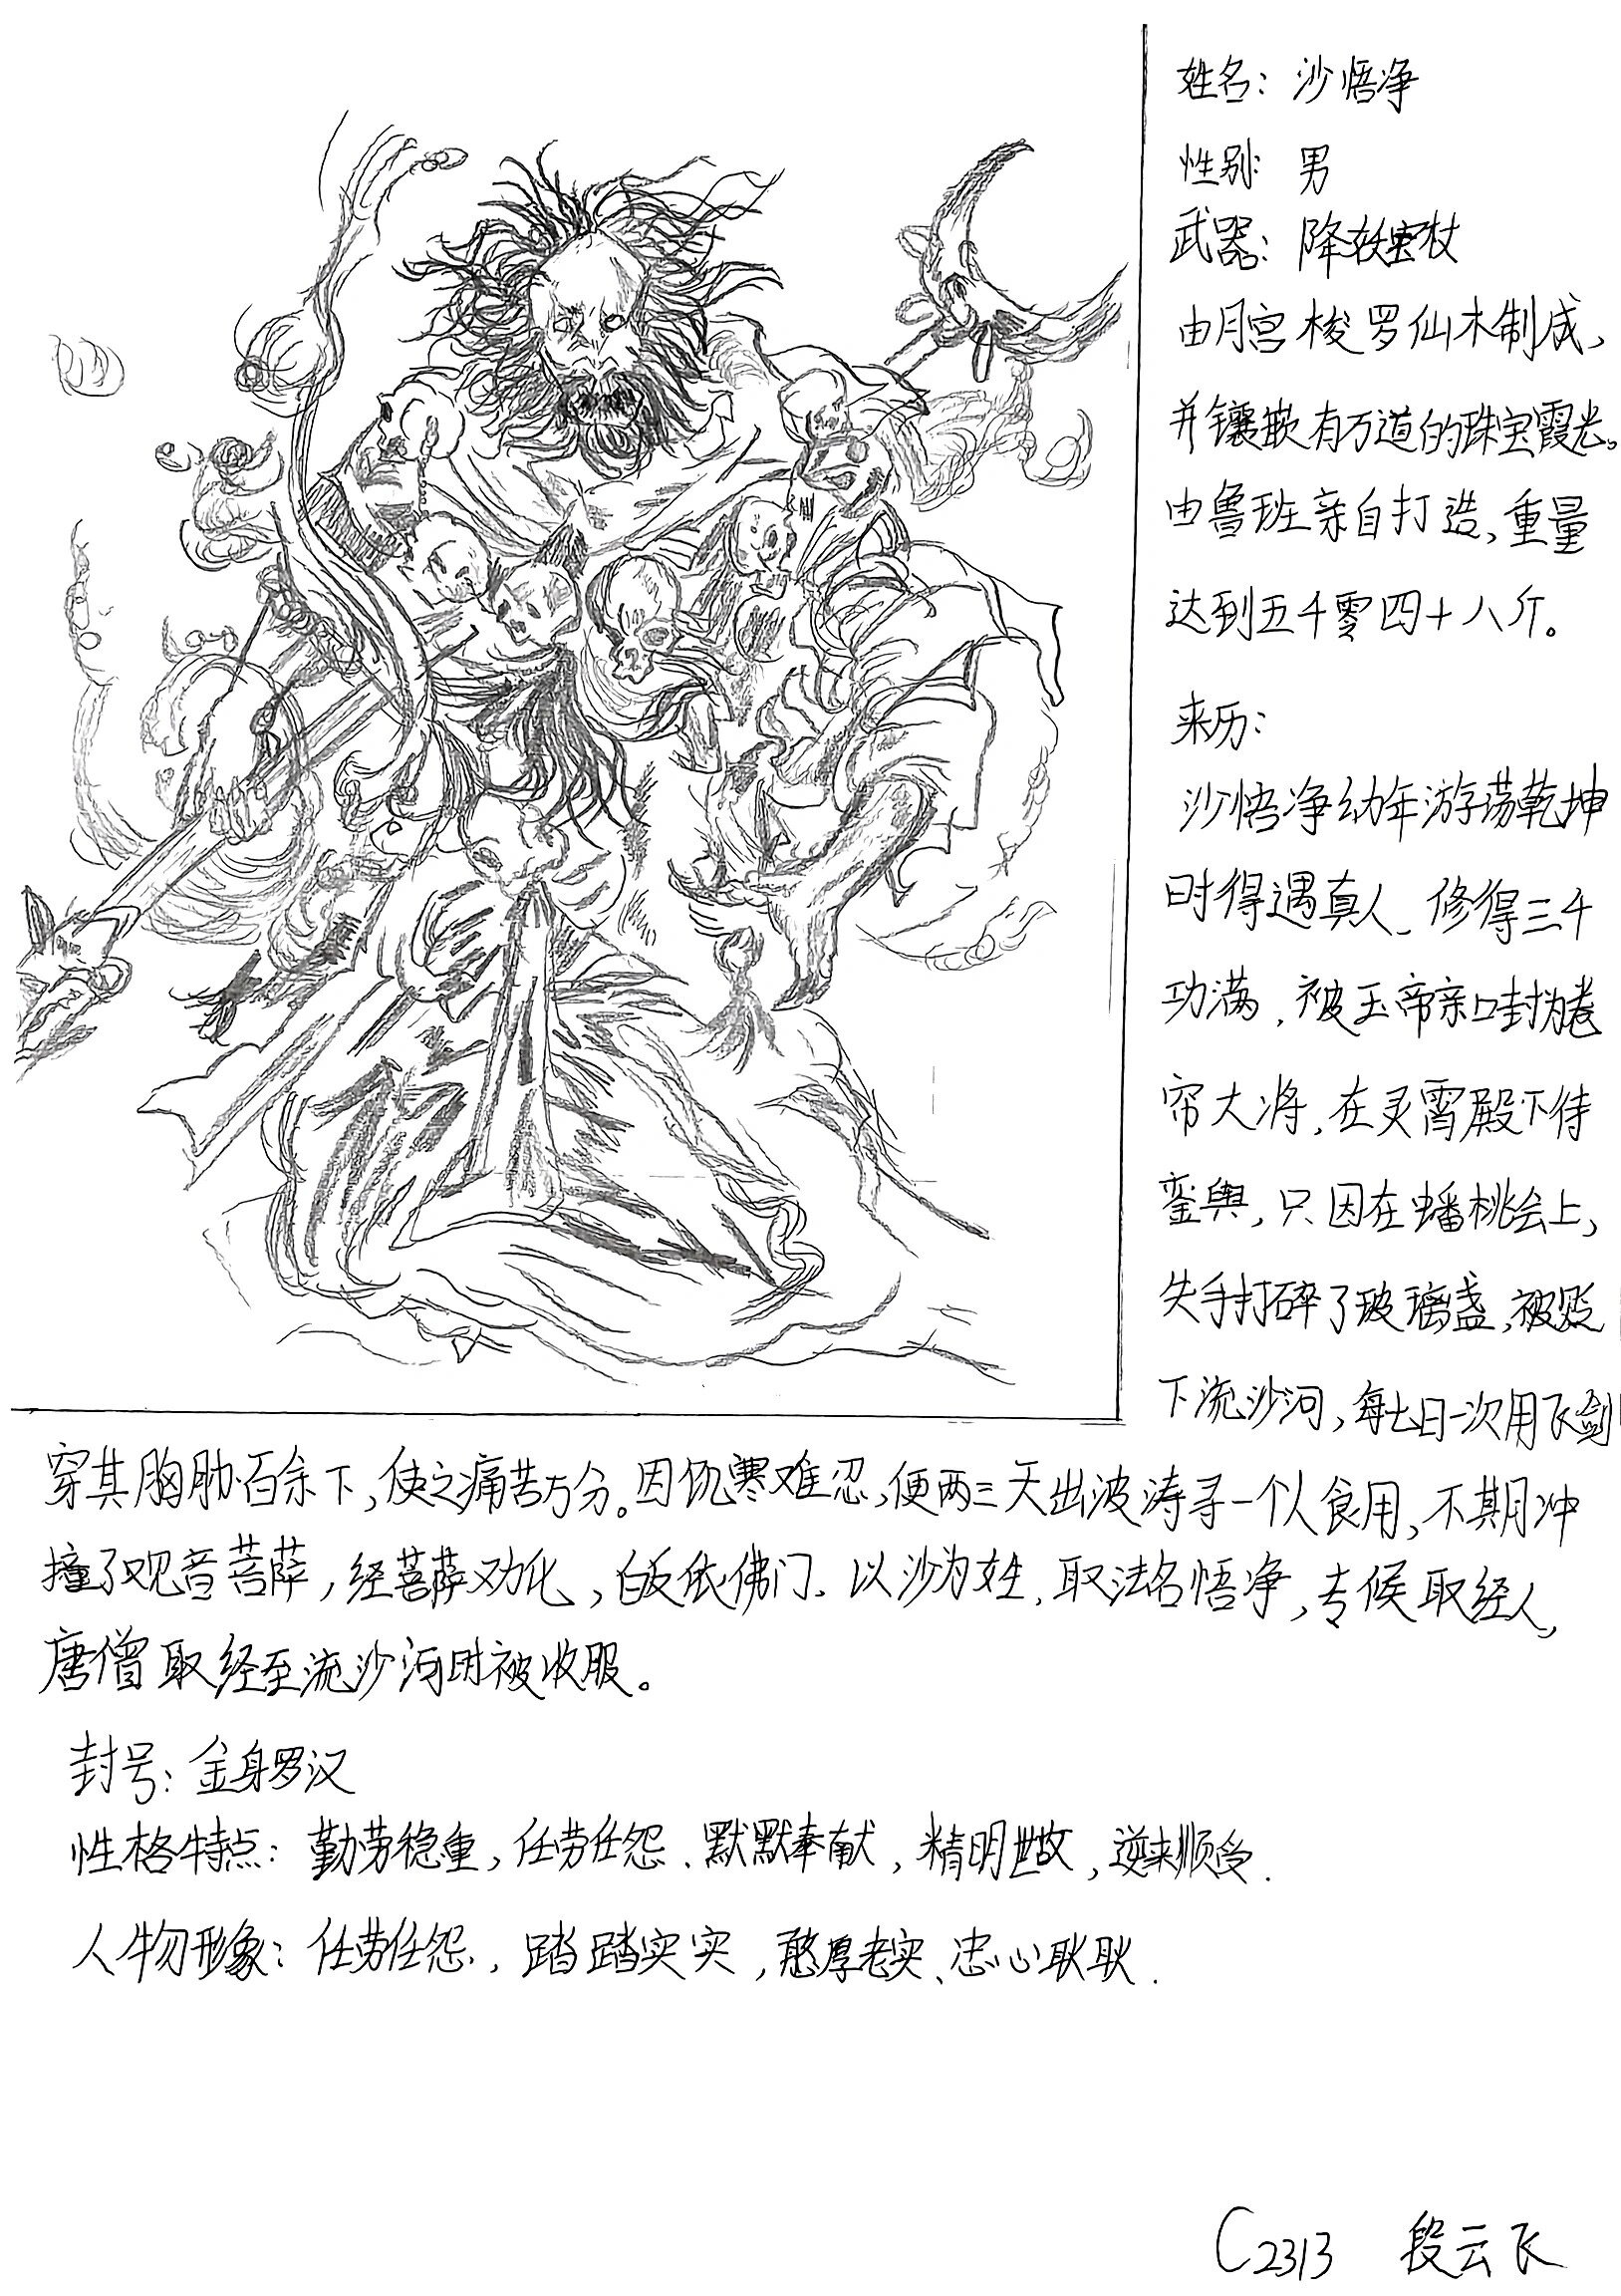 姓名：沙悟净
性别：男
武器：降妖宝杖
由月宫梭罗仙木制成，
并镶嵌有万道的珠宝霞光。
由鲁班亲自打造，重量
达到五千零四十八斤。
来历：
沙悟净幼年游荡乾坤
时得遇真人、修得三千
功满，被玉帝亲口封为卷
帘大将，在灵霄殿下侍
銮舆，只因在蟠桃会上，
失手打碎了玻璃盏，被贬
下流沙河，每七日一次用飞剑
穿其胸肋百余下，使之痛苦万分。因饥寒难忍，便两三天出波涛寻一个人食用，不期冲
撞了观音菩萨，经菩萨劝化，皈依佛门、以沙为姓，取法名悟净，专候取经人，
唐僧取经至流沙河时被收服。
封号：金身罗汉
性格特点：勤劳稳重，任劳任怨、默默奉献，精明世故，逆来顺受.
人物形象：任劳任怨，踏踏实实，憨厚老实、忠心耿耿.
C2313 段云飞